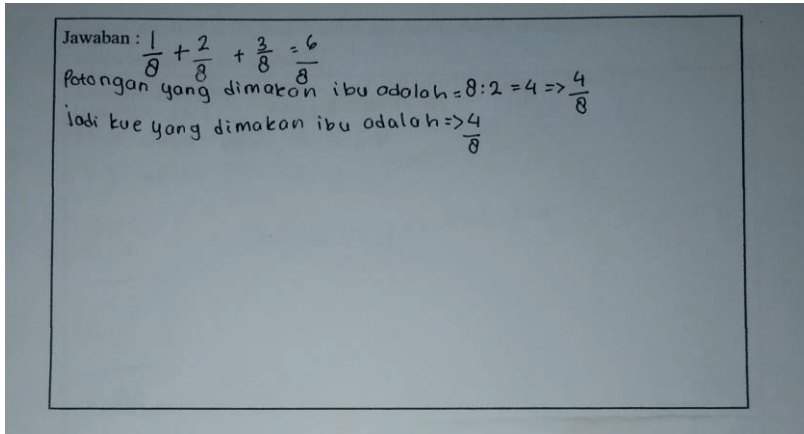 Jawaban : 1/8 + 2/8 + 3/8 = 6/8
Potongan yang dimakan ibu adalah = 8 : 2 = 4 => 4/8
jadi kue yang dimakan ibu adalah => 4/8